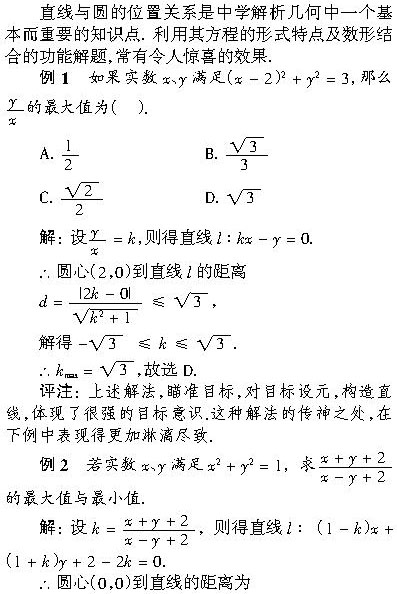 直线与圆的位置关系是中学解析几何中一个基
本而重要的知识点. 利用其方程的形式特点及数形结
合的功能解题,常有令人惊喜的效果.
例 1 如果实数 x、y 满足(x − 2)² + y² = 3,那么
y/x 的最大值为( ).
A. 1/2 B. √3/3
C. √2/2 D. √3
解: 设 y/x = k,则得直线 l : kx − y = 0.
∴ 圆心(2,0)到直线 l 的距离
d = |2k − 0|/√(k² + 1) ≤ √3 ,
解得 −√3 ≤ k ≤ √3 .
∴ kmax = √3 ,故选 D.
评注: 上述解法,瞄准目标,对目标设元,构造直
线,体现了很强的目标意识.这种解法的传神之处,在
下例中表现得更加淋漓尽致.
例 2 若实数 x、y 满足 x² + y² = 1, 求 (x + y + 2)/(x − y + 2)
的最大值与最小值.
解: 设 k = (x + y + 2)/(x − y + 2) , 则得直线 l : (1 − k)x +
(1 + k)y + 2 − 2k = 0.
∴ 圆心(0,0)到直线的距离为